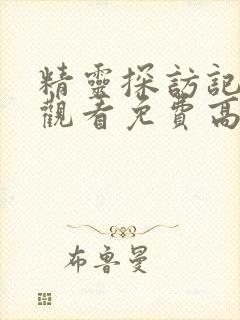 精靈探訪記
觀看免費高
布魯曼